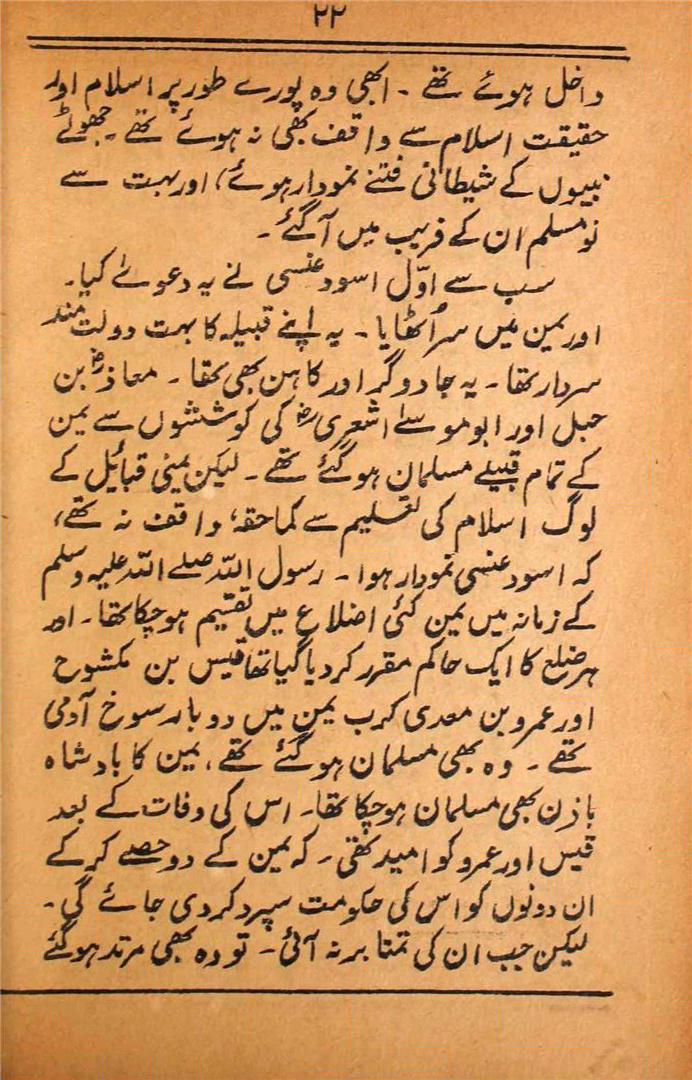 ۲۲
داخل ہوئے تھے ۔ ابھی وہ پورے طور پر اسلام اور
حقیقت اسلام سے واقف بھی نہ ہوئے تھے ۔ جھوٹے
نبیوں کے شیطانی فتنے نمودار ہوئے، اور بہت سے
نو مسلم ان کے فریب میں آ گئے ۔
سب سے اوّل اسود عنسی نے یہ دعوےٰ کیا ۔
اور یمن میں سر اُٹھایا ۔ یہ اپنے قبیلہ کا بہت دولت مند
سردار تھا ۔ یہ جادوگر اور کاہن بھی تھا ۔ معاذؓ بن
جبل اور ابو موسےٰ اشعریؓ کی کوششوں سے یمن
کے تمام قبیلے مسلمان ہو گئے تھے ۔ لیکن یمنی قبائل کے
لوگ اسلام کی تعلیم سے کماحقہٗ واقف نہ تھے،
کہ اسود عنسی نمودار ہوا ۔ رسول اللہ صلے اللہ علیہ وسلم
کے زمانہ میں یمن کئی اضلاع میں تقسیم ہو چکا تھا ۔ اور
ہر ضلع کا ایک حاکم مقرر کر دیا گیا تھا قیس بن مکشوح
اور عمرو بن معدی کرب یمن میں دو بارسوخ آدمی
تھے ۔ وہ بھی مسلمان ہو گئے تھے، یمن کا بادشاہ
باذن بھی مسلمان ہو چکا تھا ۔ اس کی وفات کے بعد
قیس اور عمرو کو امید تھی ۔ کہ یمن کے دو حصے کر کے
ان دونوں کو اس کی حکومت سپرد کر دی جائے گی ۔
لیکن جب ان کی تمنا بر نہ آئی ۔ تو وہ بھی مرتد ہو گئے